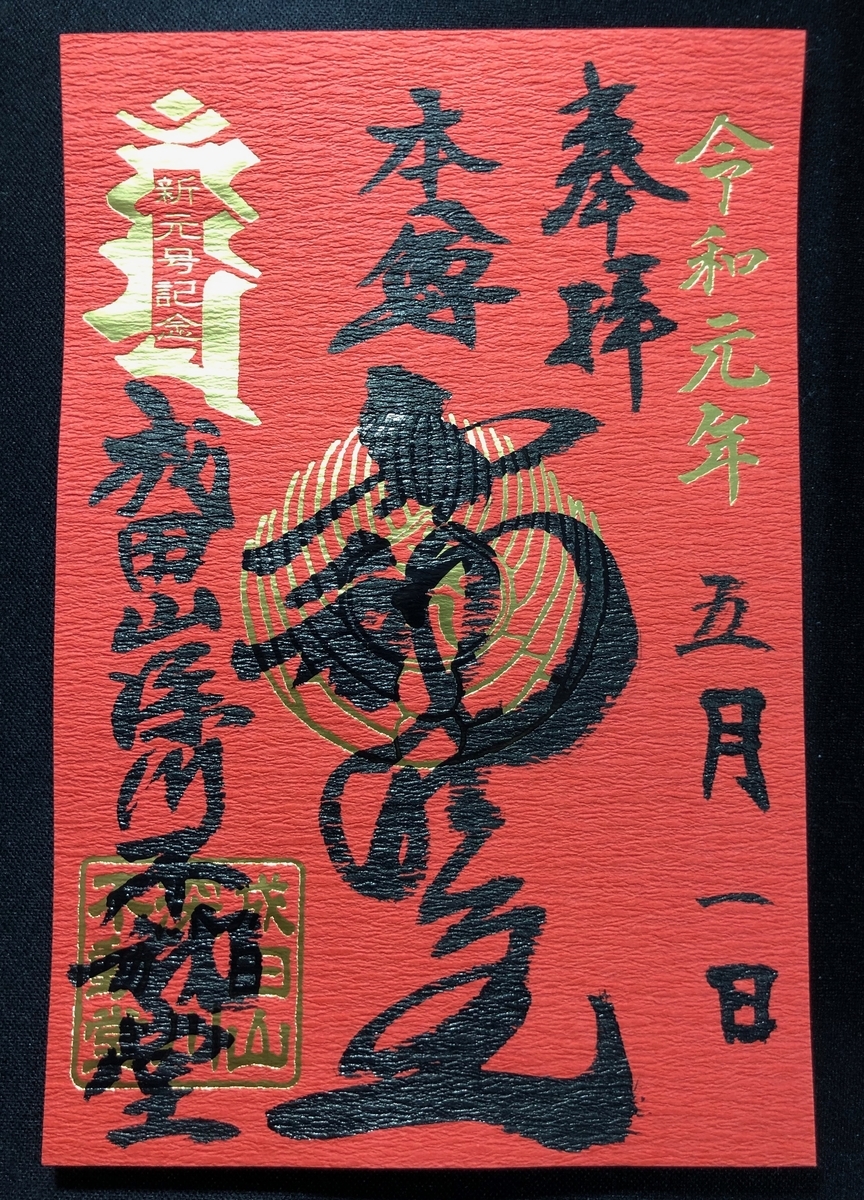 令和元年五月一日
奉拝
本尊
新元号記念
成田山深川不動堂
成田山
深川
不動堂